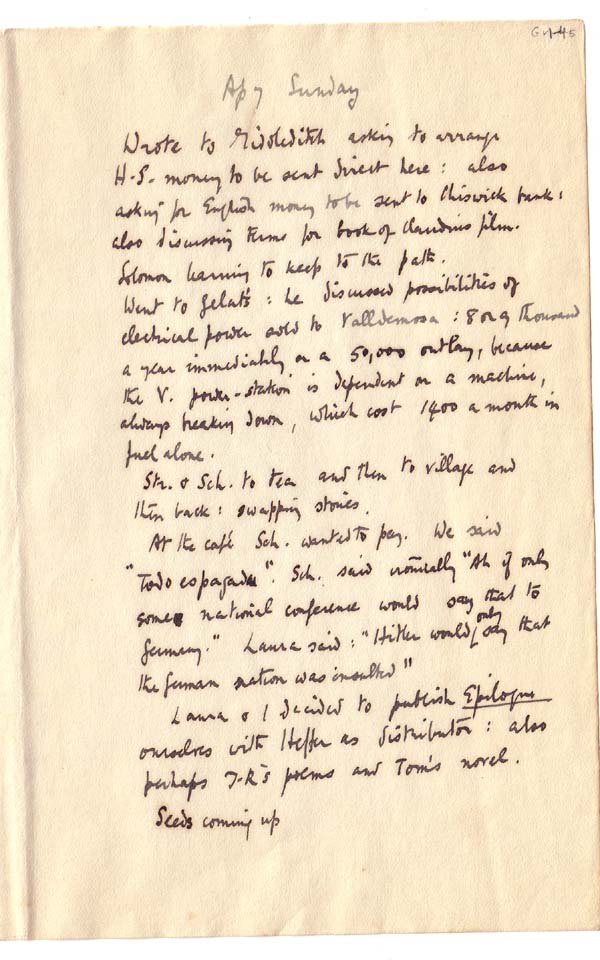 Ap 7 Sunday
Wrote to Middleditch asking to arrange
H.S. money to be sent direct here: also
asking for English money to be sent to Chiswick bank:
also discussing terms for book of Claudius film.
Solomon learning to keep to the path.
Went to Gelat's: he discussed possibilities of
electrical power sold to Valldemosa: 8 or 9 thousand
a year immediately on a 50,000 outlay, because
the V. power-station is dependent on a machine,
always breaking down, which cost 1400 a month in
fuel alone.
Str. & Sch. to tea and then to village and
then back: swapping stories.
At the café Sch. wanted to pay. We said
"Todo es pagado". Sch. said ironically "Ah if only
some national conference would say that to
Germany." Laura said: "Hitler would only say that
the German nation was insulted"
Laura & I decided to publish Epilogue
ourselves with Heffer as distributor: also
perhaps J-R's poems and Tom's novel.
Seeds coming up